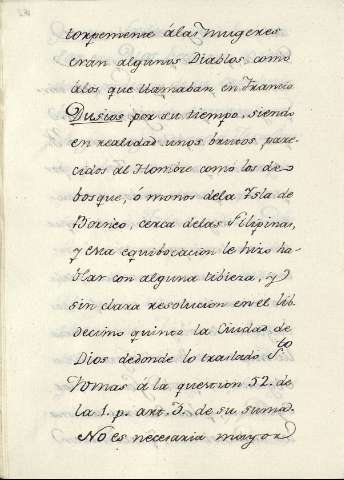 torpemente á las mugeres
eran algunos Diablos, como
álos que llamaban en Francia
Dusios por su tiempo, siendo
en realidad unos brutos pare-
cidos al Hombre como los de
bosque, ó monos dela Ysla de
Borneo, cerca delas Filipinas,
y esta equibocacion le hizo ha-
blar con alguna tibieza, y
sin clara resolucion en el lib.
decimo quinto la Ciudad de
Dios dedonde lo traslado Sto
Tomas á la question 52. de
la 1. p. art. 3. de su suma.
No es necesaria mayor